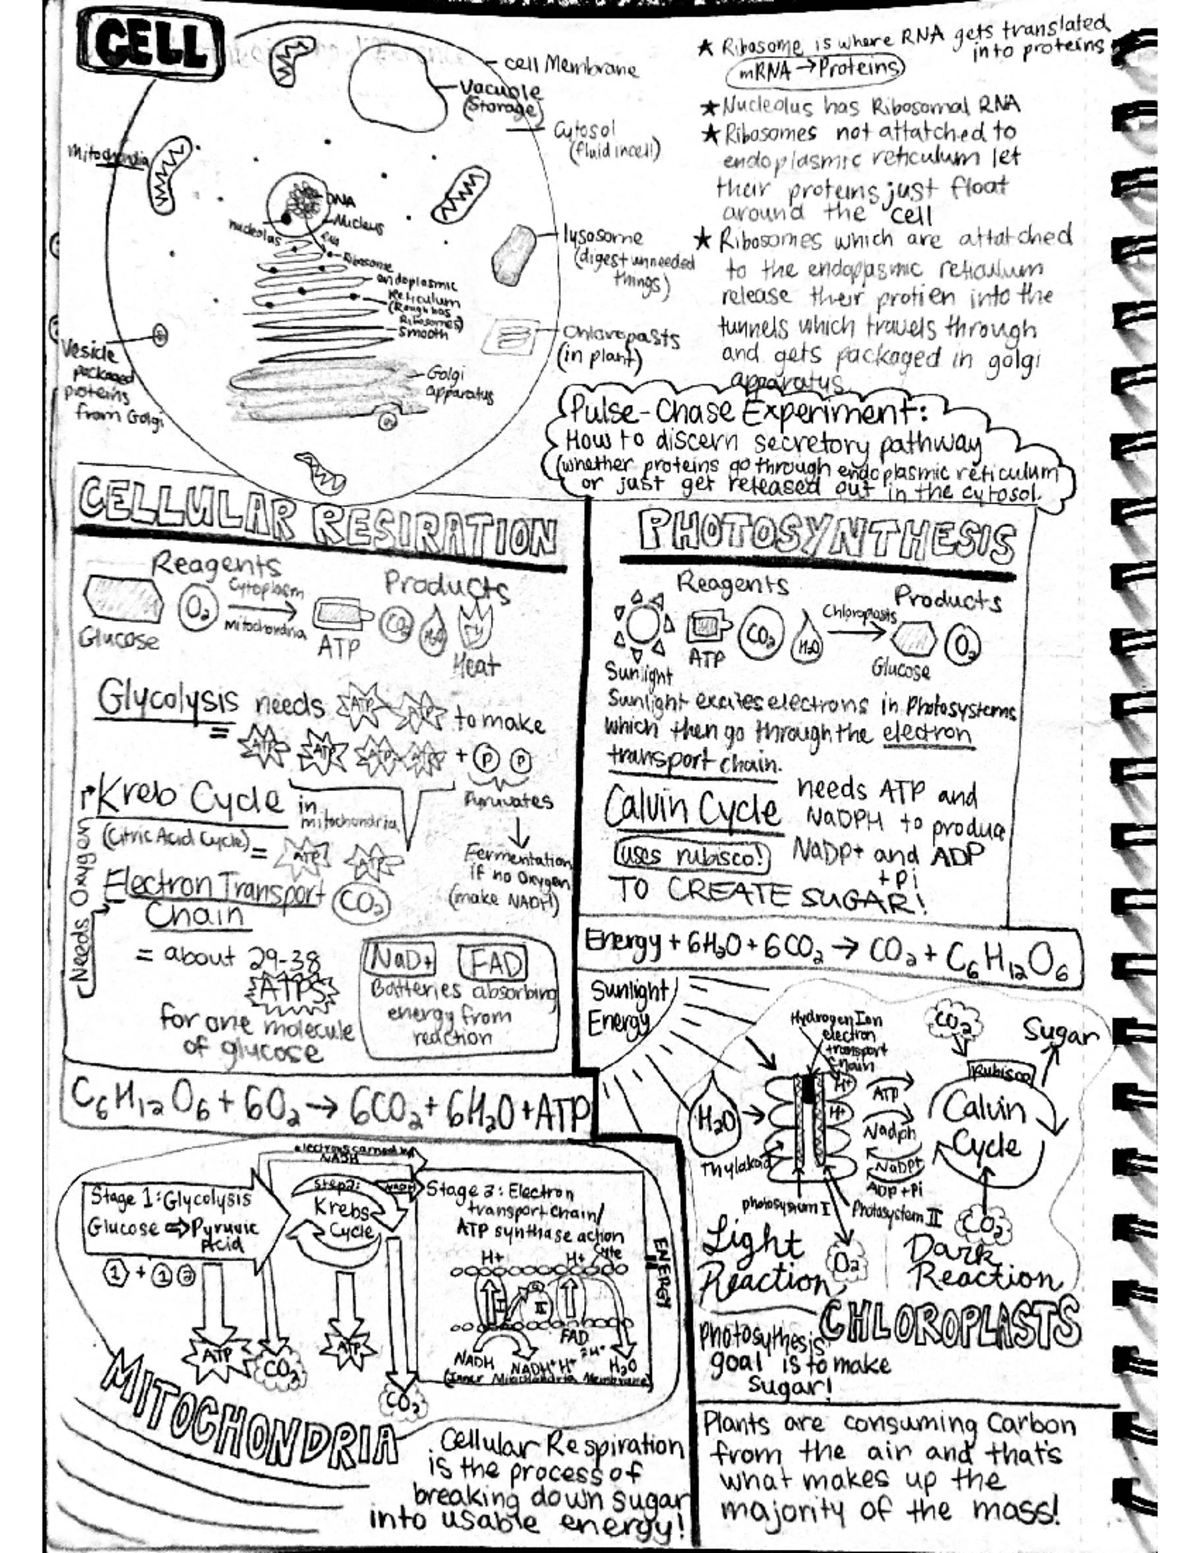 CELL
cell Membrane
Vacuole
(Storage)
Cytosol
(fluid in cell)
Mitochondria
DNA
Nucleus
nucleolas
Ribosome
endoplasmic
Reticulum
(Rough has
Ribosomes)
smooth
lysosome
(digest unneeded
things)
Chloropasts
(in plant)
Golgi
apparatus
Vesicle
packaged
proteins
from Golgi
★ Ribosome is where RNA gets translated
into proteins
mRNA → Proteins
★ Nucleolus has Ribosomal RNA
★ Ribosomes not attatched to
endoplasmic reticulum let
their proteins just float
around the cell
★ Ribosomes which are attatched
to the endoplasmic reticulum
release their protien into the
tunnels which travels through
and gets packaged in golgi
apparatus
Pulse-Chase Experiment:
How to discern secretory pathway
(whether proteins go through endoplasmic reticulum
or just get released out in the cytosol.
CELLULAR RESIRATION
Reagents
Products
Glucose
O2
Cytoplasm
Mitochondria
ATP
CO2
H2O
Heat
Glycolysis needs ATP ATP to make
= ATP ATP ATP ATP + P P
Pyruvates
Kreb Cycle in
mitochondria
(Citric Acid Cycle) = ATP ATP
CO2
Fermentation
if no oxygen
(make NADH)
Needs Oxygen
Electron Transport
Chain
= about 29-38
ATPS
for one molecule
of glucose
NaD+ FAD
Batteries absorbing
energy from
reaction
C6H12O6 + 6O2 → 6CO2 + 6H2O + ATP
PHOTOSYNTHESIS
Reagents
Products
Sunlight
ATP
CO2
H2O
Chloroplasts
Glucose
O2
Sunlight excites electrons in Photosystems
which then go through the electron
transport chain.
Calvin Cycle needs ATP and
NaDPH to produce
uses rubisco! NaDP+ and ADP
+ Pi
TO CREATE SUGAR!
Energy + 6H2O + 6CO2 → CO2 + C6H12O6
Sunlight
Energy
Hydrogen Ion
electron
transport
chain
H2O
Thylakoid
H+
H+
ATP
Nadph
NaDP+
ADP + Pi
photosystem I
Photosystem II
O2
CO2
Sugar
Rubisco
Calvin
Cycle
CO2
Light
Reaction
Dark
Reaction
CHLOROPLASTS
Photosythesis
goal is to make
sugar!
Plants are consuming Carbon
from the air and that's
what makes up the
majority of the mass!
Stage 1: Glycolysis
Glucose ⇒ Pyruvic
Acid
1 + 1 2
ATP
CO2
Step 2:
Krebs
Cycle
NADH
ATP
CO2
Stage 3: Electron
transport chain/
ATP synthase action
H+
H+
Cyte
I
Q
III
FAD
2H+
NADH
NADH+H+
H2O
(Inner Mitochondria Membrane)
ENERGY
MITOCHONDRIA
Cellular Respiration
is the process of
breaking down sugar
into usable energy!